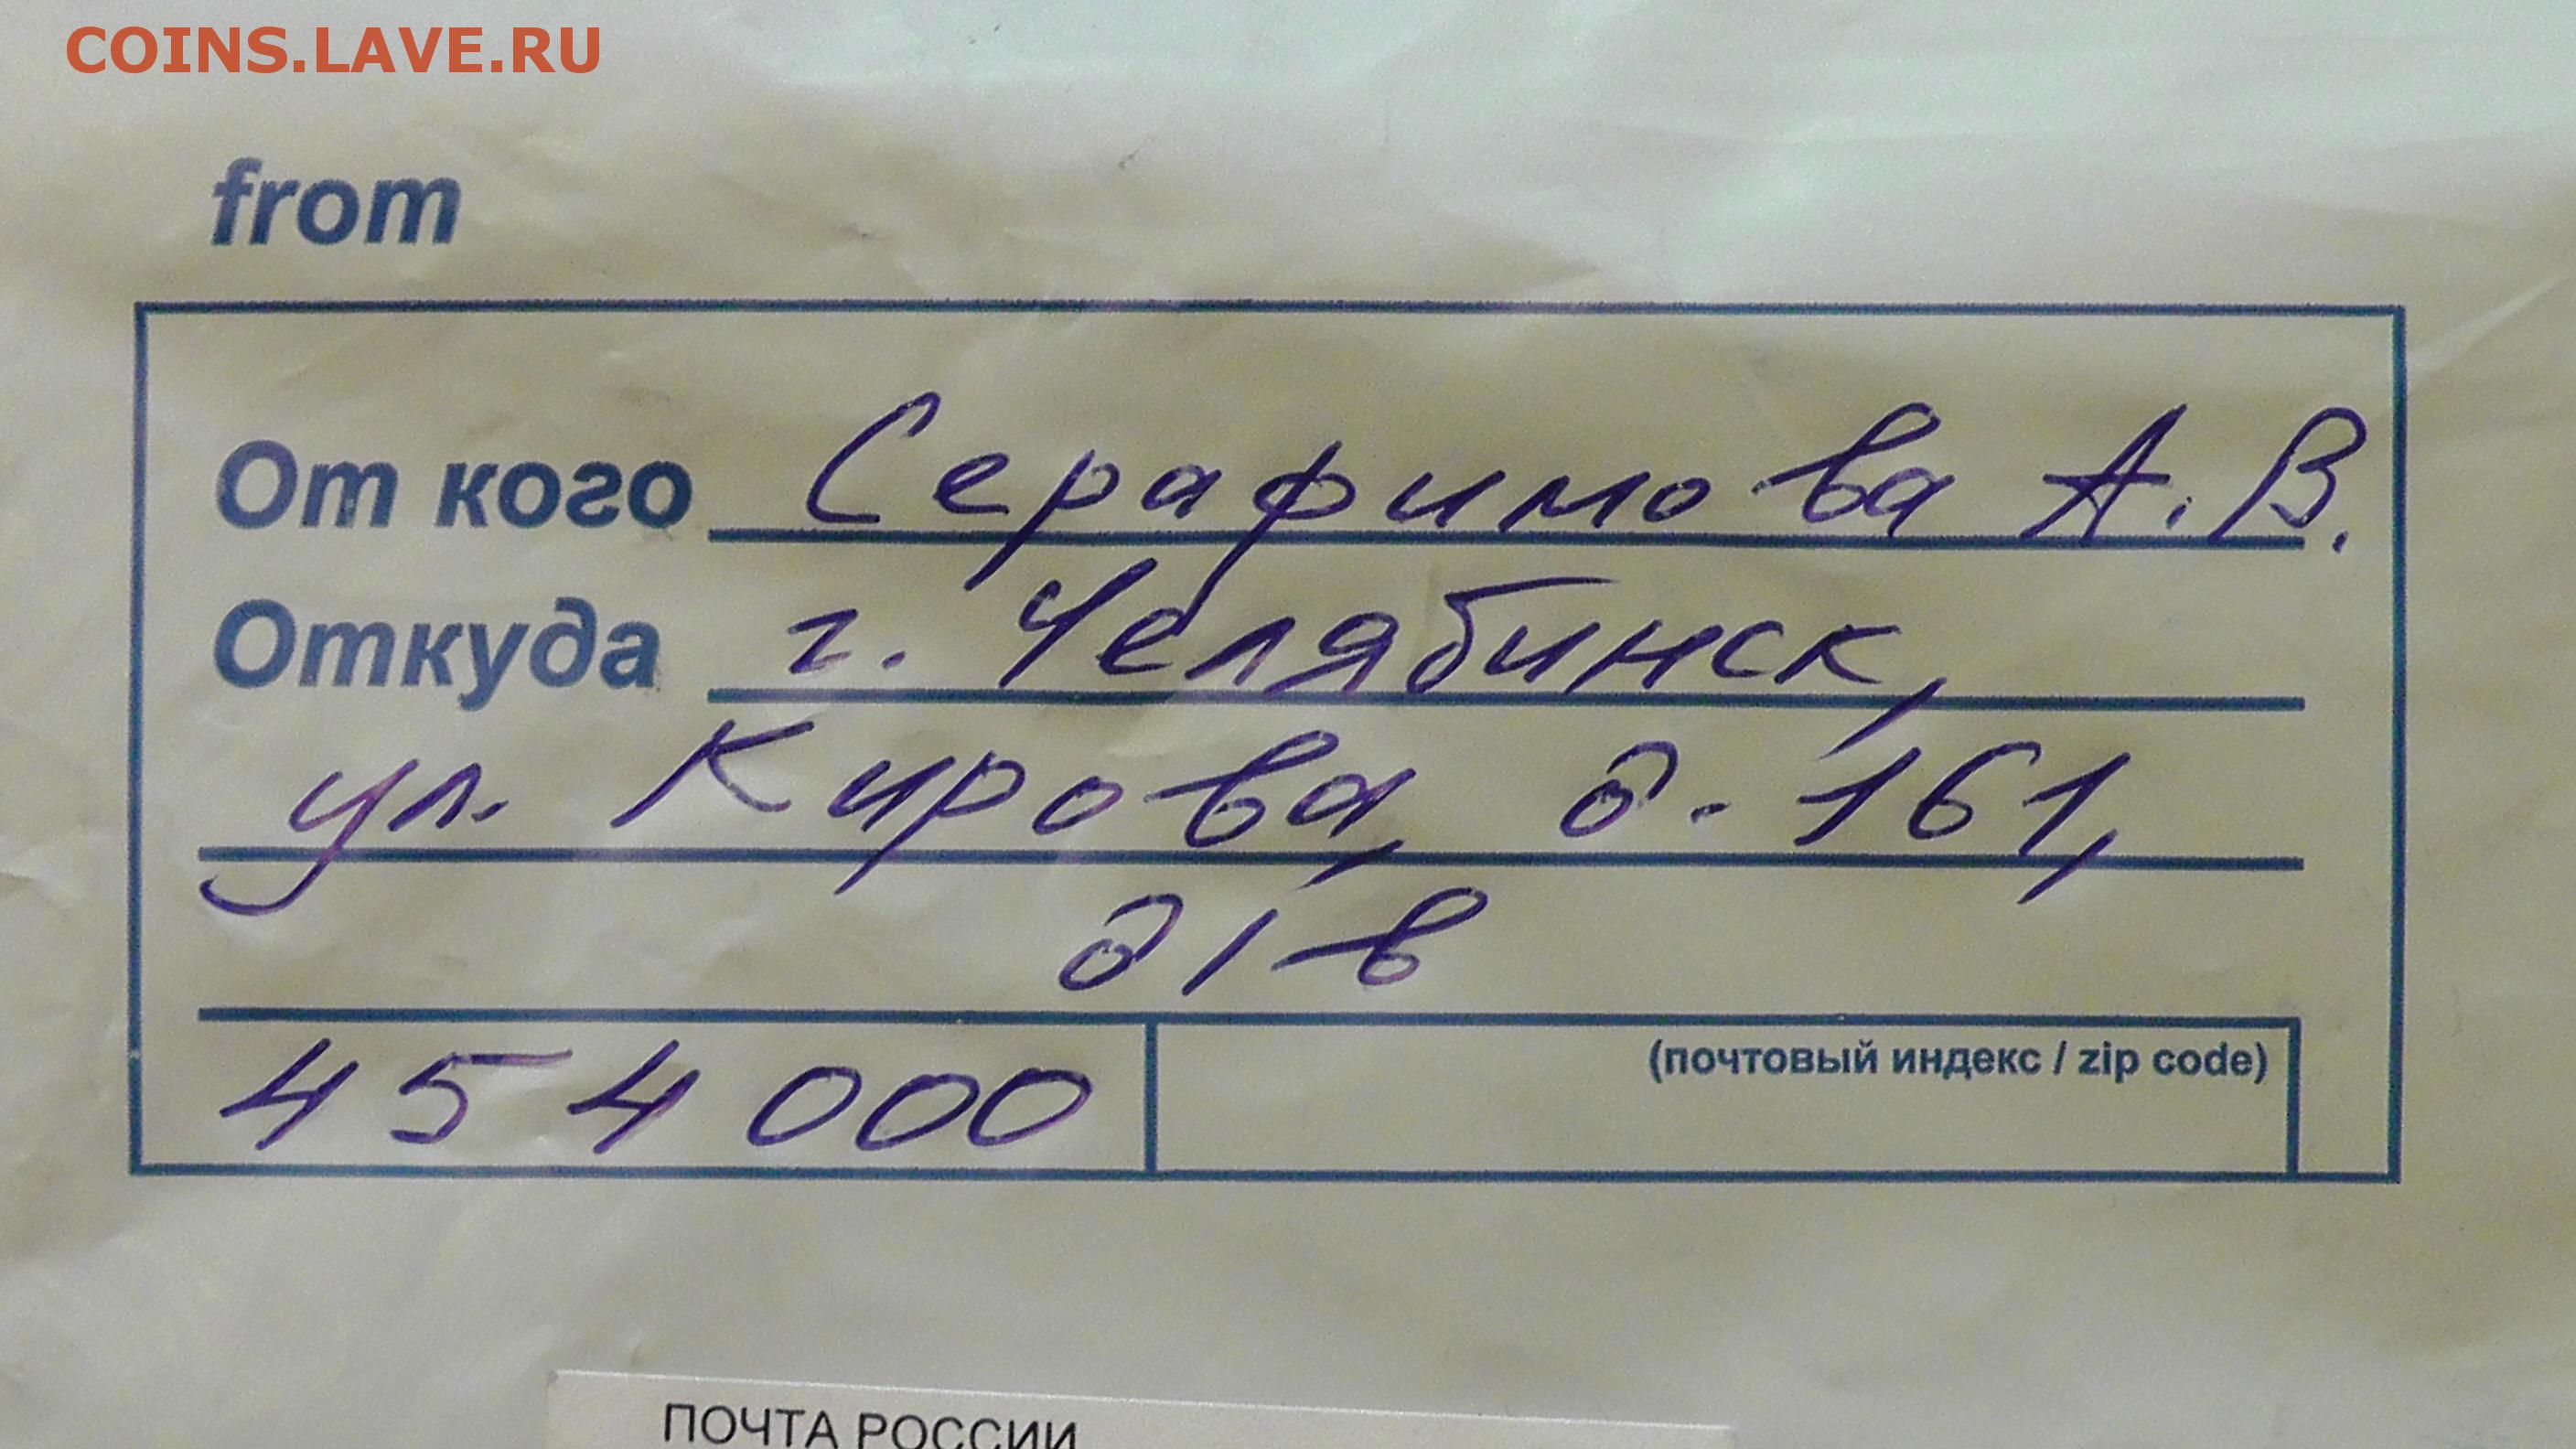 COINS.LAVE.RU
from
От кого Серафимова А.В.
Откуда г. Челябинск,
ул. Кирова, д. 161,
д/в
454000
(почтовый индекс / zip code)
ПОЧТА РОССИИ